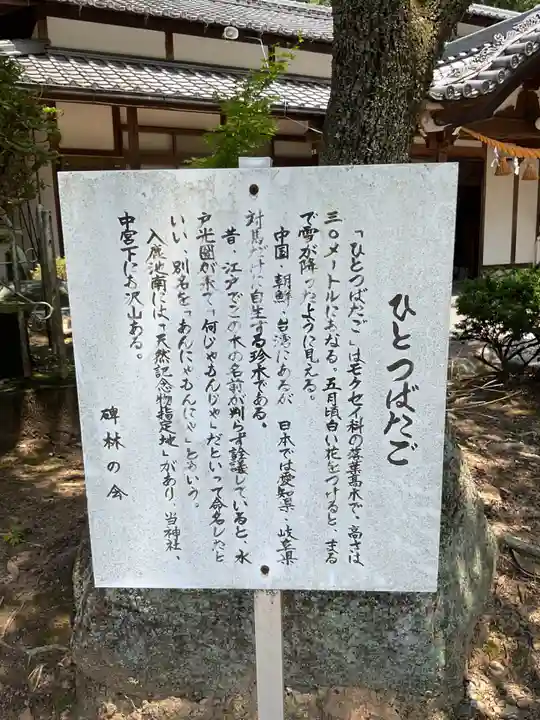 ひとつばたご
「ひとつばたご」はモクセイ科の落葉高木で、高さは
三〇メートルにもなる。五月頃白い花をつけると、まる
で雪が降ったように見える。
中国、朝鮮、台湾にあるが、日本では愛知県、岐阜県
対馬だけに自生する珍木である。
昔、江戸でこの木の名前が判らず詮議していると、水
戸光圀が来て「何じゃもんじゃ」だといって命名したと
いい、別名を「あんにゃもんにゃ」ともいう。
入鹿池南には「天然記念物指定地」があり、当神社、
中宮下にも沢山ある。
碑林の会